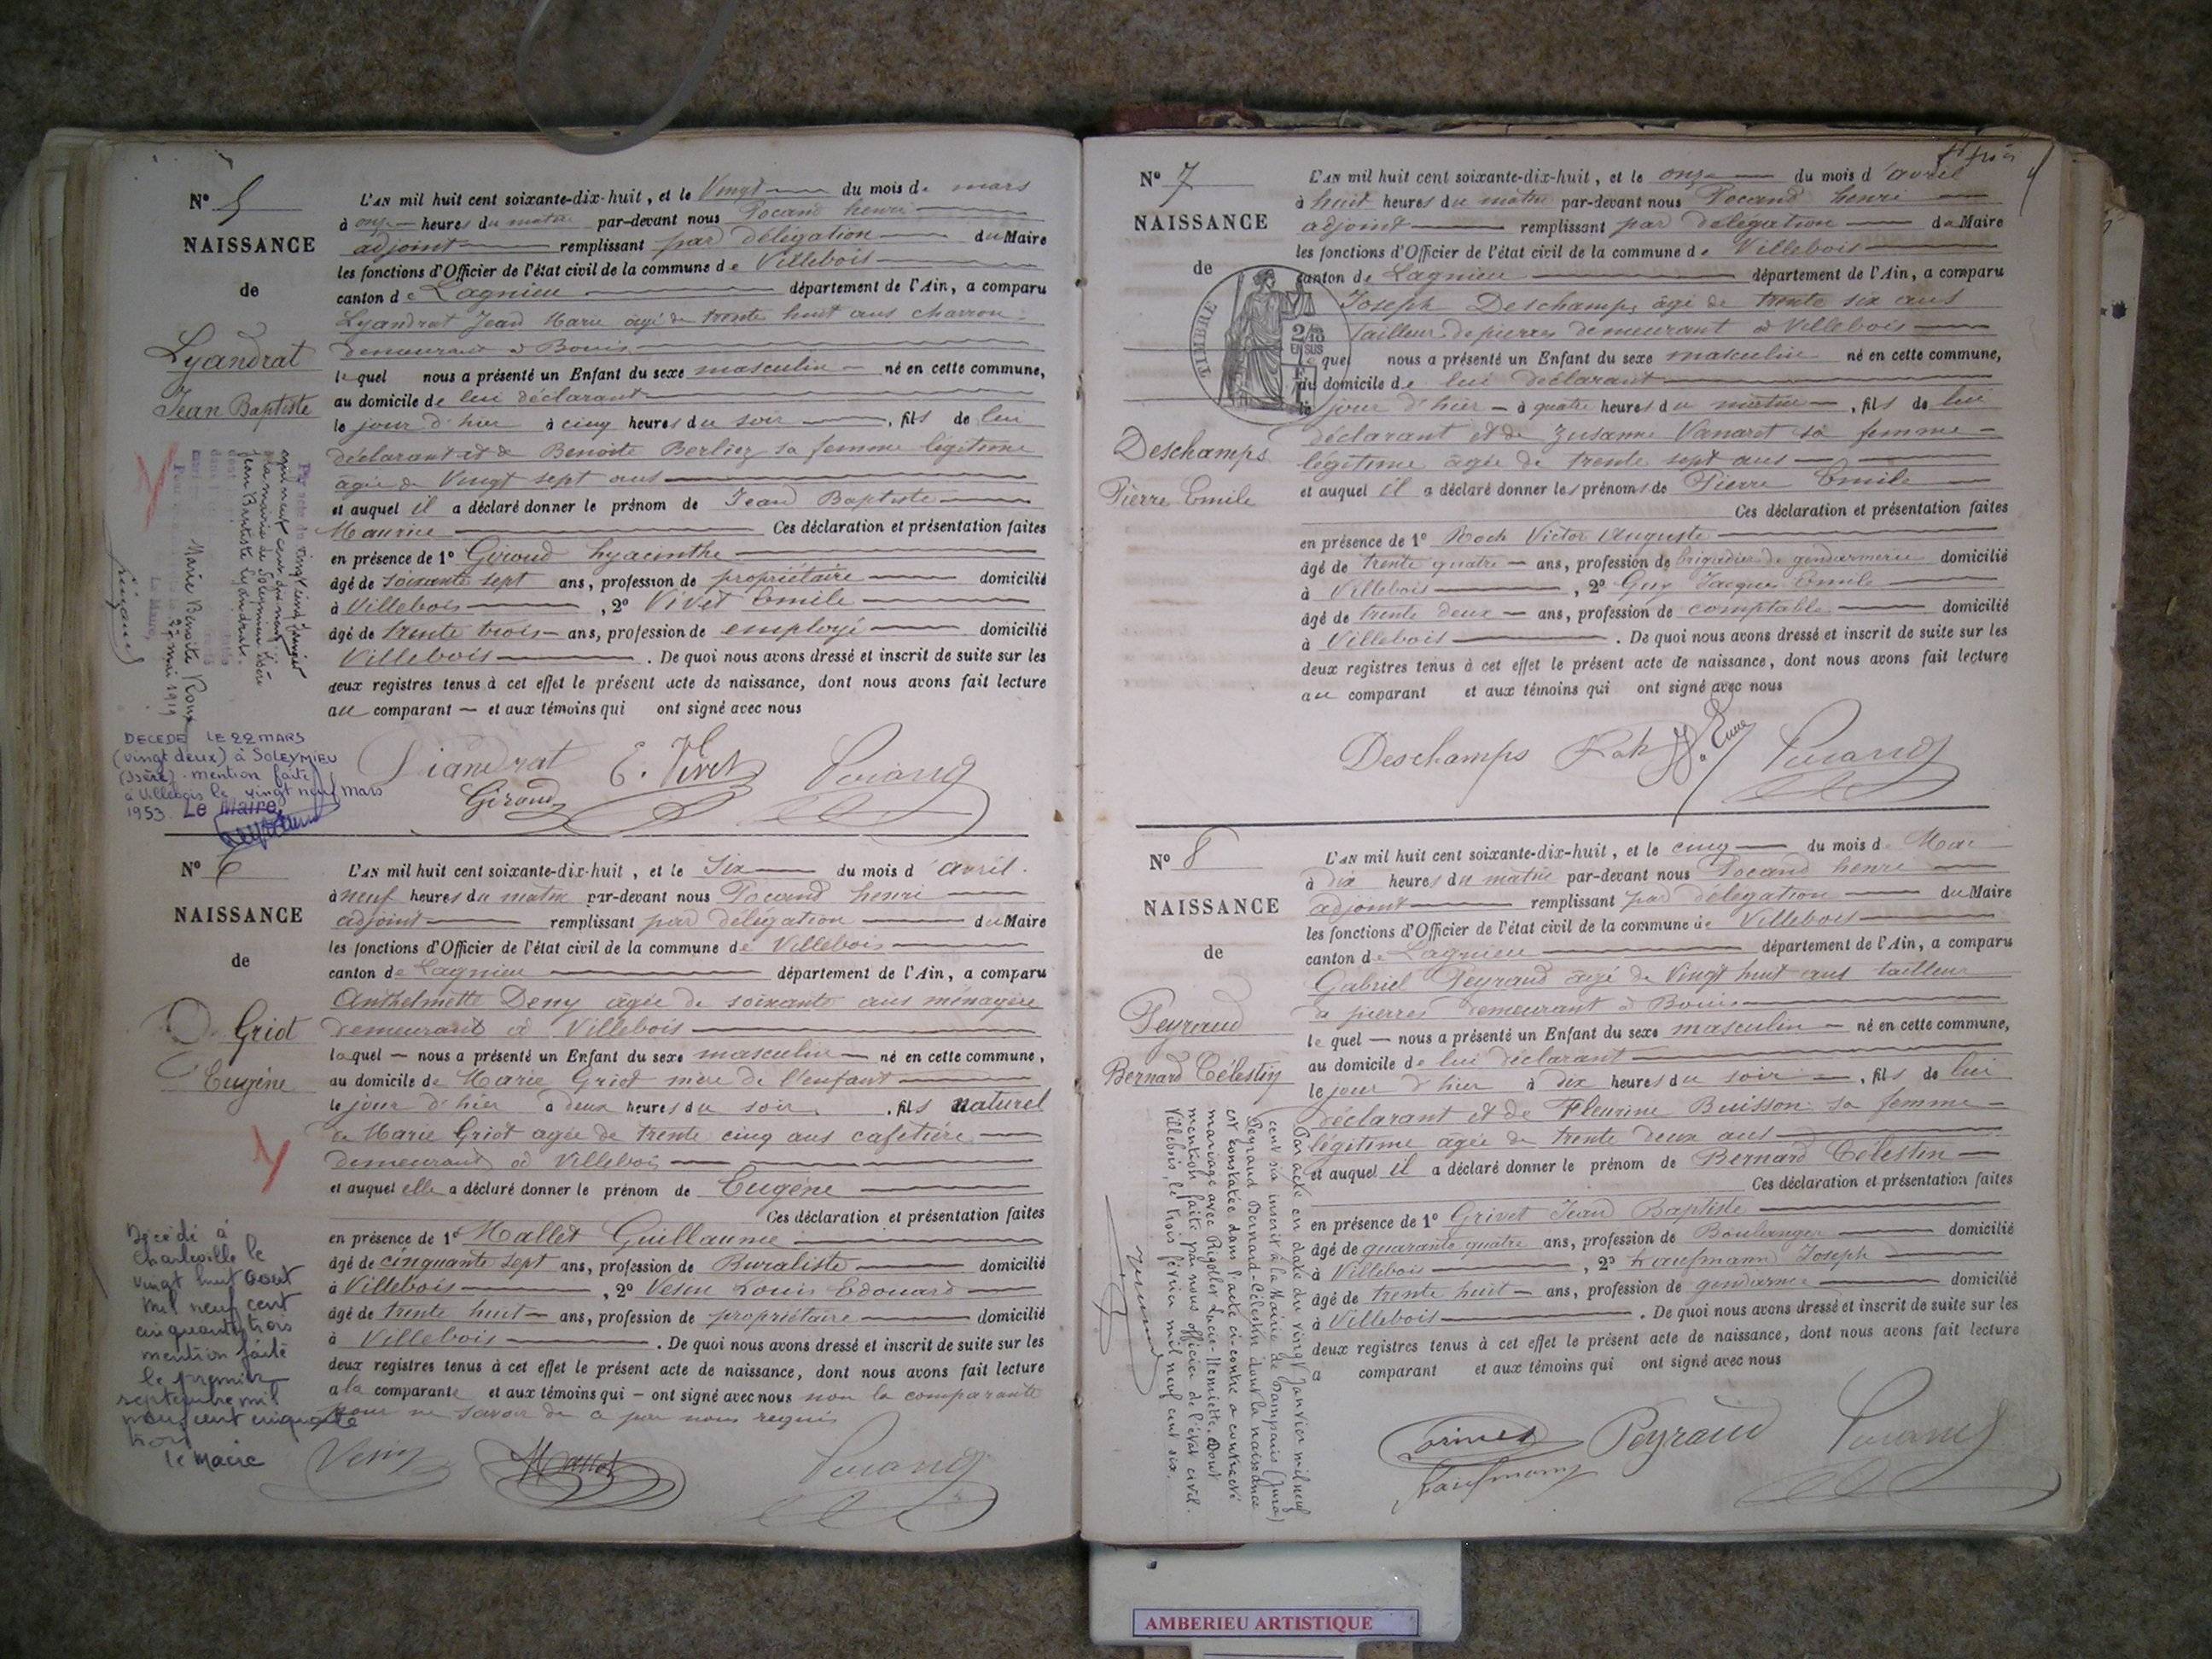 N° 5
NAISSANCE
de
Lyandrat
Jean Baptiste
L'AN mil huit cent soixante-dix-huit, et le Vingt du mois de mars
à onze heures du matin par-devant nous Pocand henri
adjoint remplissant par délégation du Maire
les fonctions d'Officier de l'état civil de la commune de Villebois
canton de Lagnieu département de l'Ain, a comparu
Lyandrat Jean Marie âgé de trente huit ans charron
demeurant à Bouis
lequel nous a présenté un Enfant du sexe masculin né en cette commune,
au domicile de lui déclarant
le jour d'hier à cinq heures du soir, fils de lui
déclarant et de Benoite Berliez sa femme légitime
âgée de Vingt sept ans
et auquel il a déclaré donner le prénom de Jean Baptiste
Maurice Ces déclaration et présentation faites
en présence de 1° Giroud hyacinthe
âgé de soixante sept ans, profession de propriétaire domicilié
à Villebois, 2° Vivet Emile
âgé de trente trois ans, profession de employé domicilié
Villebois. De quoi nous avons dressé et inscrit de suite sur les
deux registres tenus à cet effet le présent acte de naissance, dont nous avons fait lecture
au comparant et aux témoins qui ont signé avec nous
Liandrat E. Vivet Pocand
Giroud
vingt cinq
mil neuf cent dix neuf
la mairie de Soleymieu Isère
Jean Baptiste Lyandrat
Marie Benoite Roux
mai 1919
Le Maire,
DECEDE LE 22 MARS
(vingt deux) à SOLEYMIEU
(Isère). mention faite
à Villebois le vingt neuf mars
1953. Le Maire,
N° 6
NAISSANCE
de
Griot
Eugène
L'AN mil huit cent soixante-dix-huit, et le Six du mois d'avril
à neuf heures du matin par-devant nous Pocand henri
adjoint remplissant par délégation du Maire
les fonctions d'Officier de l'état civil de la commune de Villebois
canton de Lagnieu département de l'Ain, a comparu
Anthelmette Deny âgée de soixante ans ménagère
demeurant à Villebois
laquel nous a présenté un Enfant du sexe masculin né en cette commune,
au domicile de Marie Griot mère de l'enfant
le jour d'hier à deux heures du soir, fils naturel
de Marie Griot agée de trente cinq ans cafetière
demeurant à Villebois
et auquel elle a déclaré donner le prénom de Eugène
Ces déclaration et présentation faites
en présence de 1° Mallet Guillaume
âgé de cinquante sept ans, profession de Buraliste domicilié
à Villebois, 2° Vesin Louis Edouard
âgé de trente huit ans, profession de propriétaire domicilié
à Villebois. De quoi nous avons dressé et inscrit de suite sur les
deux registres tenus à cet effet le présent acte de naissance, dont nous avons fait lecture
a la comparante et aux témoins qui ont signé avec nous non la comparante
pour ne savoir de ce par nous requis
Vesin Mallet Pocand
Décédé à
Charleville le
vingt huit août
mil neuf cent
cinquante trois
mention faite
le premier
septembre mil
neuf cent cinquante
trois
le Maire
N° 7
NAISSANCE
de
TIMBRE
2/10
EN SUS
Deschamps
Pierre Emile
L'AN mil huit cent soixante-dix-huit, et le onze du mois d'avril
à huit heures du matin par-devant nous Pocand henri
adjoint remplissant par délégation du Maire
les fonctions d'Officier de l'état civil de la commune de Villebois
canton de Lagnieu département de l'Ain, a comparu
Joseph Deschamps âgé de trente six ans
Tailleur de pierres demeurant à Villebois
lequel nous a présenté un Enfant du sexe masculin né en cette commune,
au domicile de lui déclarant
le jour d'hier à quatre heures du matin, fils de lui
déclarant et de Zusanne Vanaret sa femme
légitime âgée de trente sept ans
et auquel il a déclaré donner les prénoms de Pierre Emile
Ces déclaration et présentation faites
en présence de 1° Roch Victor Auguste
âgé de trente quatre ans, profession de brigadier de gendarmerie domicilié
à Villebois, 2° Guy Jacques Emile
âgé de trente deux ans, profession de comptable domicilié
à Villebois. De quoi nous avons dressé et inscrit de suite sur les
deux registres tenus à cet effet le présent acte de naissance, dont nous avons fait lecture
au comparant et aux témoins qui ont signé avec nous
Deschamps Pocand
N° 8
NAISSANCE
de
Peyraud
Bernard Célestin
L'AN mil huit cent soixante-dix-huit, et le cinq du mois de Mai
à dix heures du matin par-devant nous Pocand henri
adjoint remplissant par délégation du Maire
les fonctions d'Officier de l'état civil de la commune de Villebois
canton de Lagnieu département de l'Ain, a comparu
Gabriel Peyraud âgé de Vingt huit ans tailleur
de pierres demeurant à Bouis
lequel nous a présenté un Enfant du sexe masculin né en cette commune,
au domicile de lui déclarant
le jour d'hier à dix heures du soir, fils de lui
déclarant et de Fleurine Buisson sa femme
légitime agée de trente deux ans
et auquel il a déclaré donner le prénom de Bernard Célestin
Ces déclaration et présentation faites
en présence de 1° Grivet Jean Baptiste
âgé de quarante quatre ans, profession de Boulanger domicilié
à Villebois, 2° Kaufmann Joseph
âgé de trente huit ans, profession de gendarme domicilié
à Villebois. De quoi nous avons dressé et inscrit de suite sur les
deux registres tenus à cet effet le présent acte de naissance, dont nous avons fait lecture
a comparant et aux témoins qui ont signé avec nous
Peyraud Pocand
Kaufmann
Par acte en date du vingt Janvier mil neuf
cent six inscrit à la Mairie de Damparis (Jura)
Peyraud Bernard-Célestin dont la naissance
est constatée dans l'acte ci-contre a contracté
mariage avec Rigollet Lucie-Henriette. Dont
mention faite par nous officier de l'état civil.
Villebois, le trois février mil neuf cent six.
AMBERIEU ARTISTIQUE